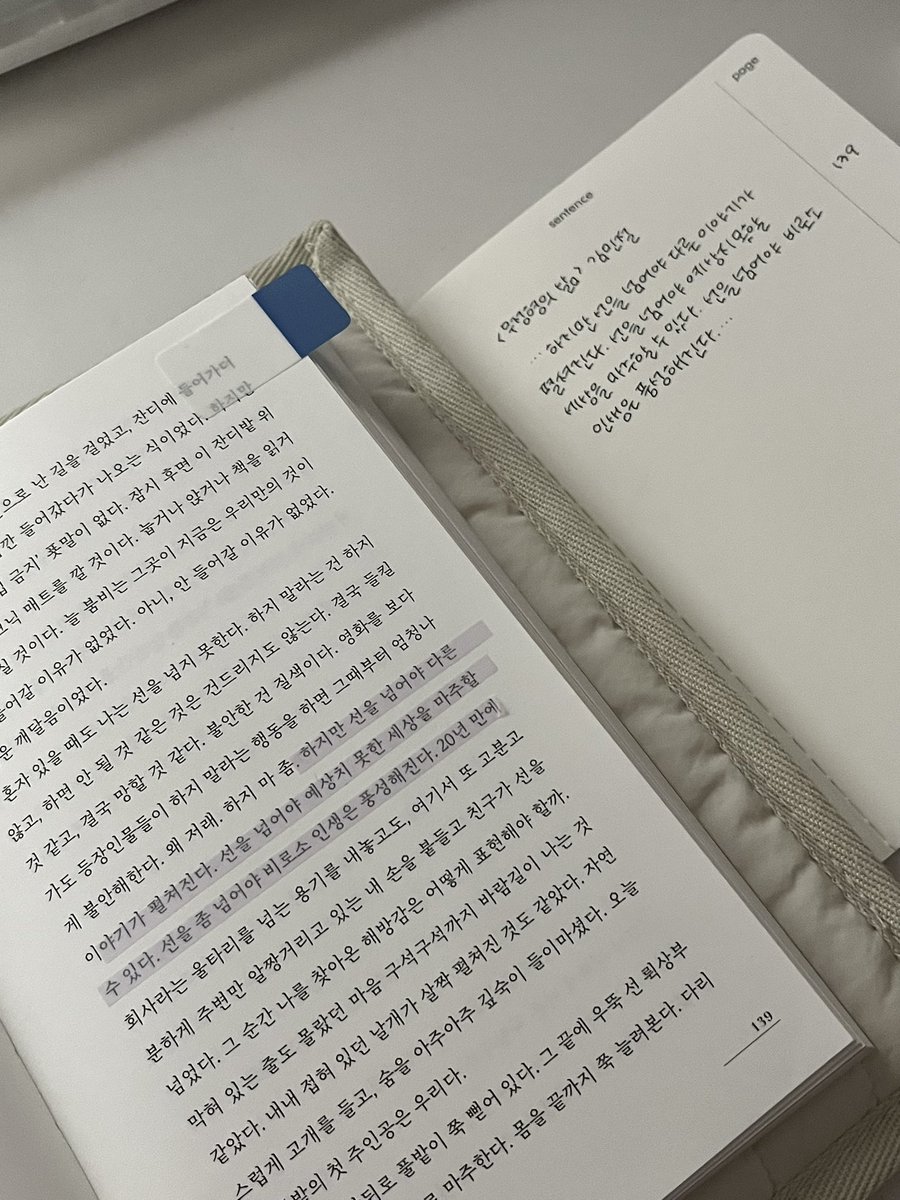 들어가디
하지만
으로 난 길을 걸었고, 잔디에
간 들어갔다가 나오는 식이었다.
금지' 푯말이 없다. 잠시 후면 이 잔디밭 위
매트를 깔 것이다. 눕거나 앉거나 책을 읽거
것이다. 늘 붐비는 그곳이 지금은 우리만의 것이
들어갈 이유가 없었다. 아니, 안 들어갈 이유가 없었다.
은 깨달음이었다.
혼자 있을 때도 나는 선을 넘지 못한다. 하지 말라는 건 하지
않고, 하면 안 될 것 같은 것은 건드리지도 않는다. 결국 들킬
것 같고, 결국 망할 것 같다. 불안한 건 질색이다. 영화를 보다
가도 등장인물들이 하지 말라는 행동을 하면 그때부터 엄청나
게 불안해한다. 왜 저래. 하지 마 좀. 하지만 선을 넘어야 다른
이야기가 펼쳐진다. 선을 넘어야 예상치 못한 세상을 마주할
수 있다. 선을 좀 넘어야 비로소 인생은 풍성해진다. 20년 만에
회사라는 울타리를 넘는 용기를 내놓고도, 여기서 또 고분고
분하게 주변만 알짱거리고 있는 내 손을 붙들고 친구가 선을
넘었다. 그 순간 나를 찾아온 해방감은 어떻게 표현해야 할까.
막혀 있는 줄도 몰랐던 마음 구석구석까지 바람길이 나는 것
같았다. 내내 접혀 있던 날개가 살짝 펼쳐진 것도 같았다. 자연
스럽게 고개를 들고, 숨을 아주아주 깊숙이 들이마셨다. 오늘
밭의 첫 주인공은 우리다.
뒤로 풀밭이 쭉 뻗어 있다. 그 끝에 우뚝 선 뤽상부
마주한다. 몸을 끝까지 쭉 늘려본다. 다리
139
page
139
sentence
<무정형의 삶> 김민철
... 하지만 선을 넘어야 다른 이야기가
펼쳐진다. 선을 넘어야 예상치 못한
세상을 마주할 수 있다. 선을 넘어야 비로소
인생은 풍성해진다....